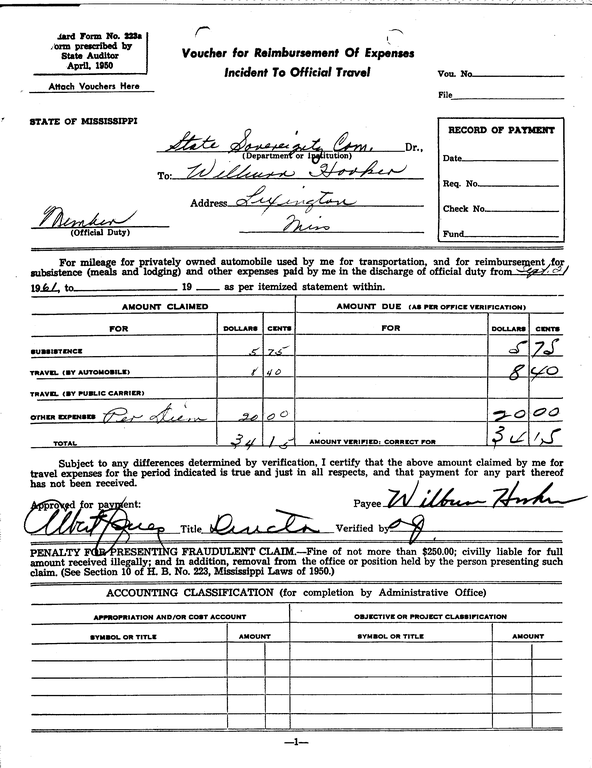 dard Form No. 223a
orm prescribed by
State Auditor
April, 1950
Attach Vouchers Here
Voucher for Reimbursement Of Expenses
Incident To Official Travel
Vou. No.
File
STATE OF MISSISSIPPI
State Sovereignty Com. Dr.,
(Department or Institution)
To: Wilburn Hooker
Address Lexington
Miss
Member
(Official Duty)
RECORD OF PAYMENT
Date
Req. No.
Check No.
Fund
For mileage for privately owned automobile used by me for transportation, and for reimbursement for
subsistence (meals and lodging) and other expenses paid by me in the discharge of official duty from Sept. 21
1961, to 19 as per itemized statement within.
AMOUNT CLAIMED AMOUNT DUE (AS PER OFFICE VERIFICATION)
FOR DOLLARS CENTS FOR DOLLARS CENTS
SUBSISTENCE 5 75 5 75
TRAVEL (BY AUTOMOBILE) 8 40 8 40
TRAVEL (BY PUBLIC CARRIER)
OTHER EXPENSES Per Diem 20 00 20 00
TOTAL 34 15 AMOUNT VERIFIED: CORRECT FOR 34 15
Subject to any differences determined by verification, I certify that the above amount claimed by me for
travel expenses for the period indicated is true and just in all respects, and that payment for any part thereof
has not been received.
Approved for payment: Payee Wilburn Hooker
Albert Jones Title Director Verified by
PENALTY FOR PRESENTING FRAUDULENT CLAIM.—Fine of not more than $250.00; civilly liable for full
amount received illegally; and in addition, removal from the office or position held by the person presenting such
claim. (See Section 10 of H. B. No. 223, Mississippi Laws of 1950.)
ACCOUNTING CLASSIFICATION (for completion by Administrative Office)
APPROPRIATION AND/OR COST ACCOUNT OBJECTIVE OR PROJECT CLASSIFICATION
SYMBOL OR TITLE AMOUNT SYMBOL OR TITLE AMOUNT
—1—